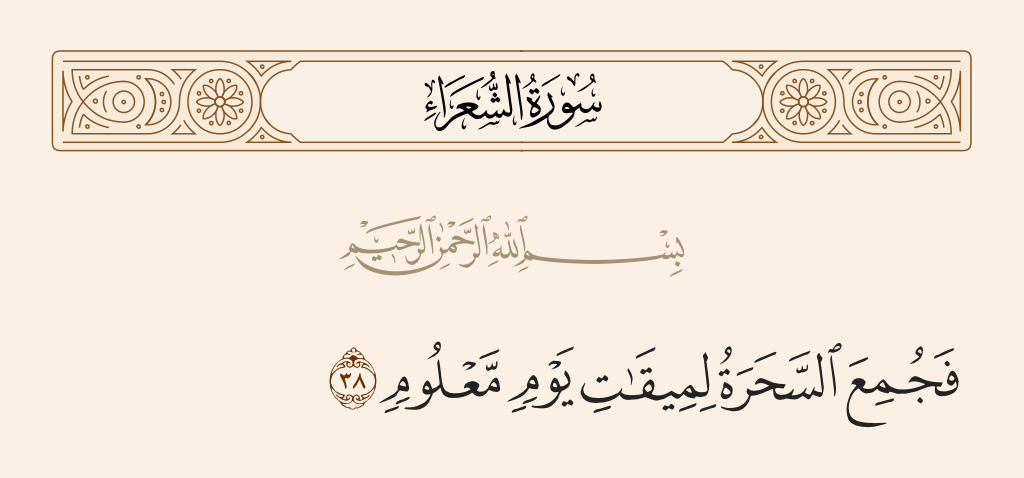 سُورَةُ الشُّعَرَاءِ
بِسْمِ ٱللَّهِ ٱلرَّحْمَٰنِ ٱلرَّحِيمِ
فَجُمِعَ ٱلسَّحَرَةُ لِمِيقَٰتِ يَوْمٍ مَّعْلُومٍ ٣٨